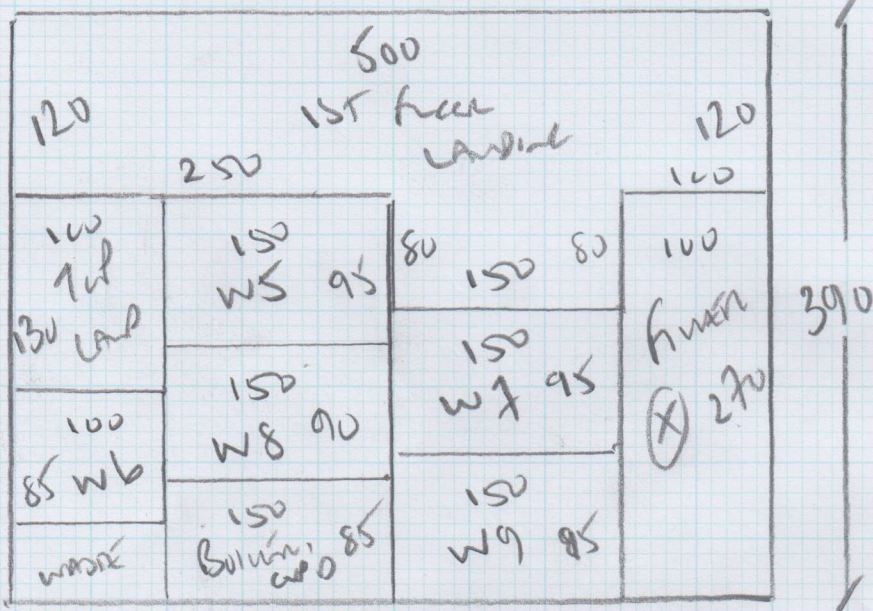 500
120
1ST FLOOR
LANDING
120
250
100
100
TOP
130 LAND
150
W5 95
80
150
80
100
390
150
W7 95
270
X
100
85 W6
150
W8 90
WASTE
150
85
CUPD
150
W9 95